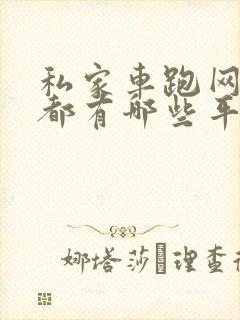 私家车跑网
都有哪些平
娜塔莎 理查